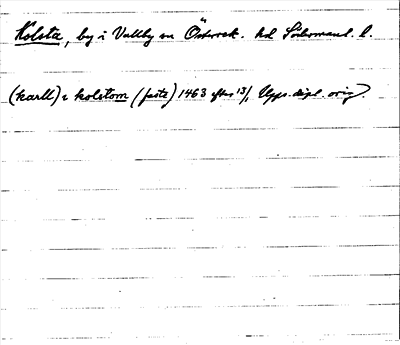 Kolsta, by i Vallby sn Österrek. hd Södermanl. l.
(karll) i kolstom (faste) 1463 efter 13/1 Upps. dipl. orig.